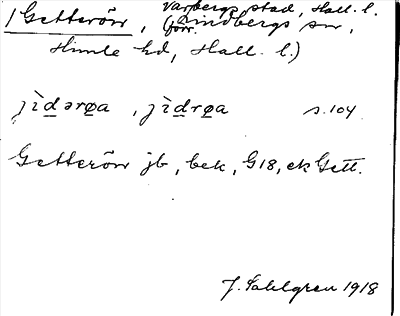 /Getterön, Varbergs stad, Hall. l.
(förr. Lindbergs sn,
Himle hd, Hall. l.)
jìdərøa, jìdrøa s. 104
Getterön jb, bek, G18, ek Gett.
J. Sahlgren 1918